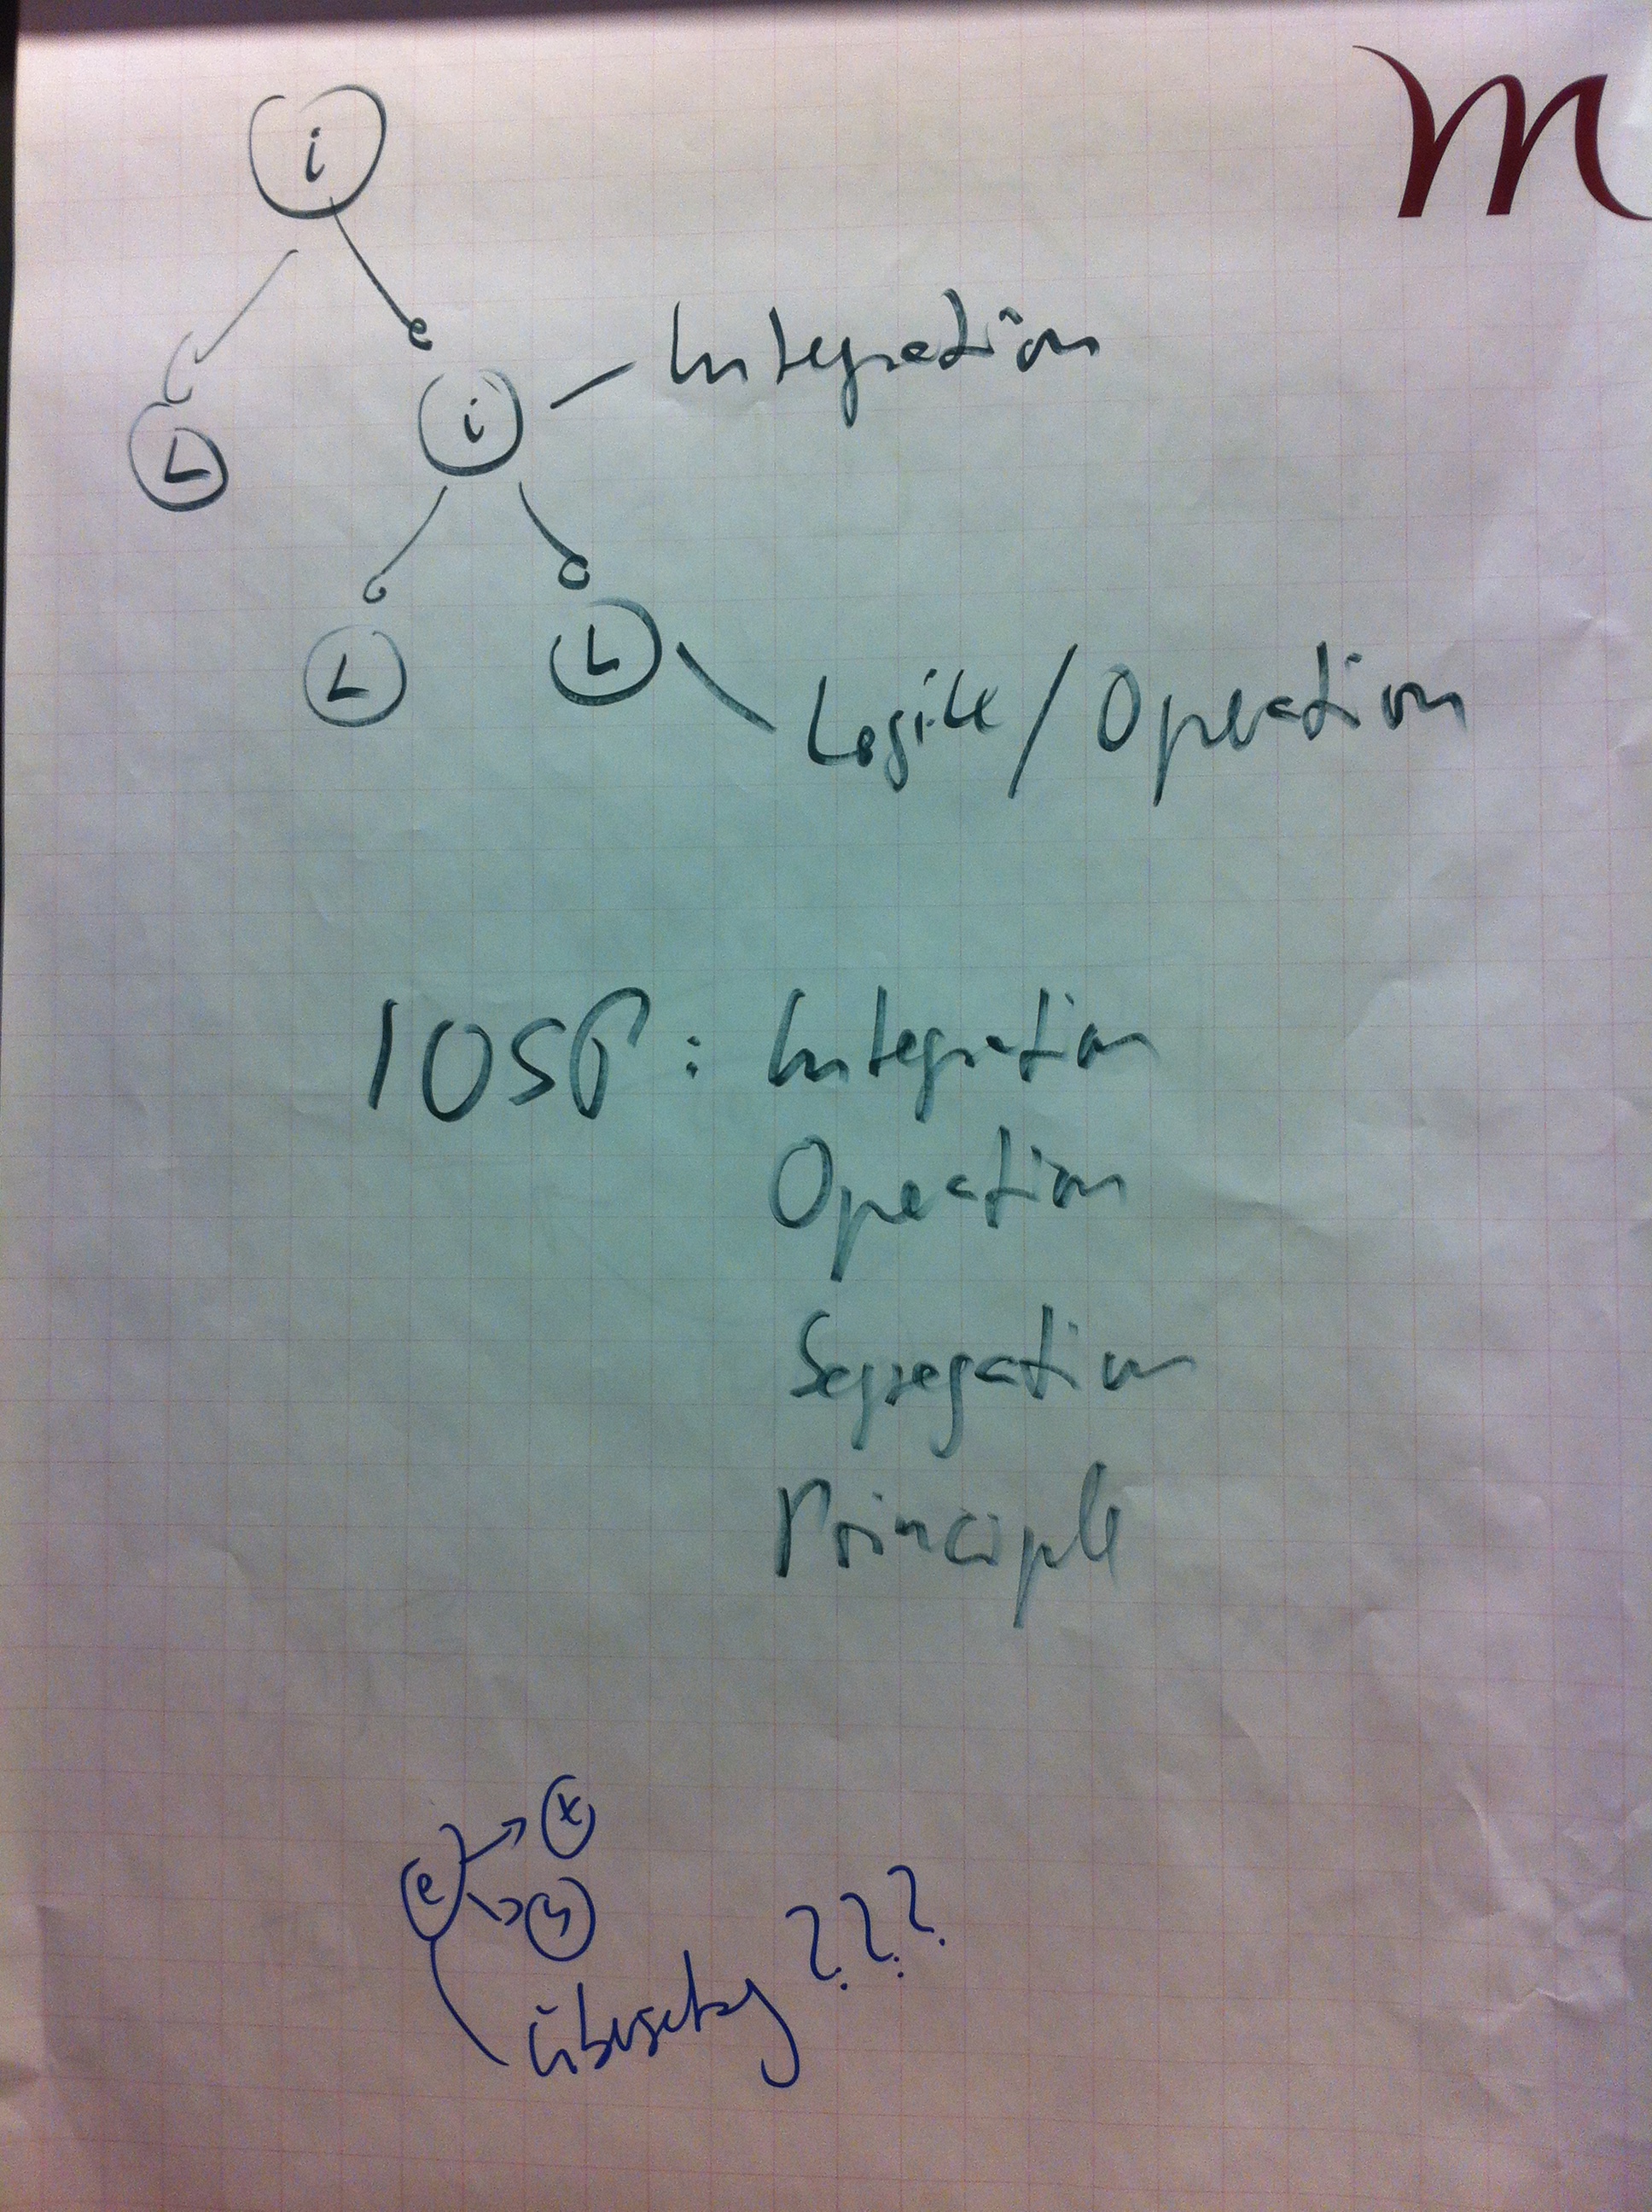 m
i
i – Integration
L
L L
Logik / Operation
IOSP: Integration
Operation
Segregation
Principle
x
e
y
Übersetzung ???